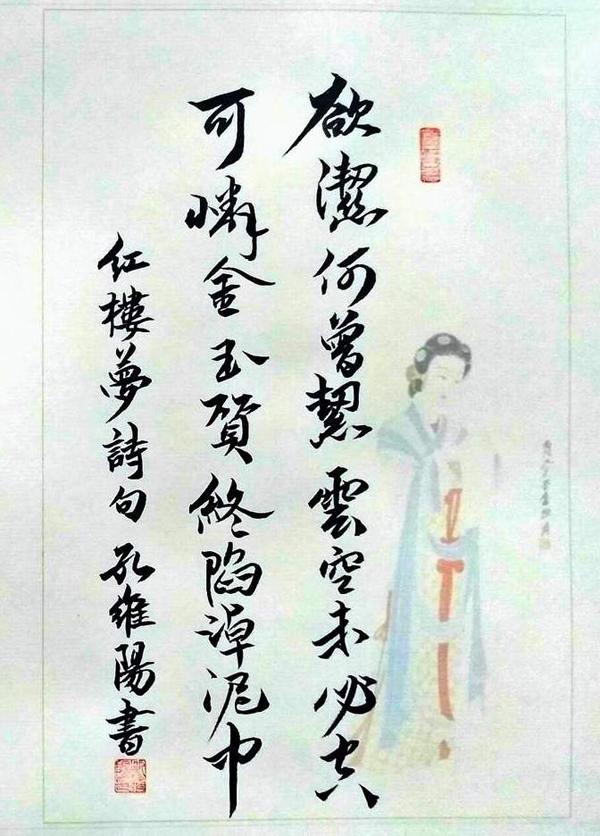 欲潔何曾絜雲空未必空
可憐金玉質終陷淖泥中
紅樓夢詩句 孔維陽書